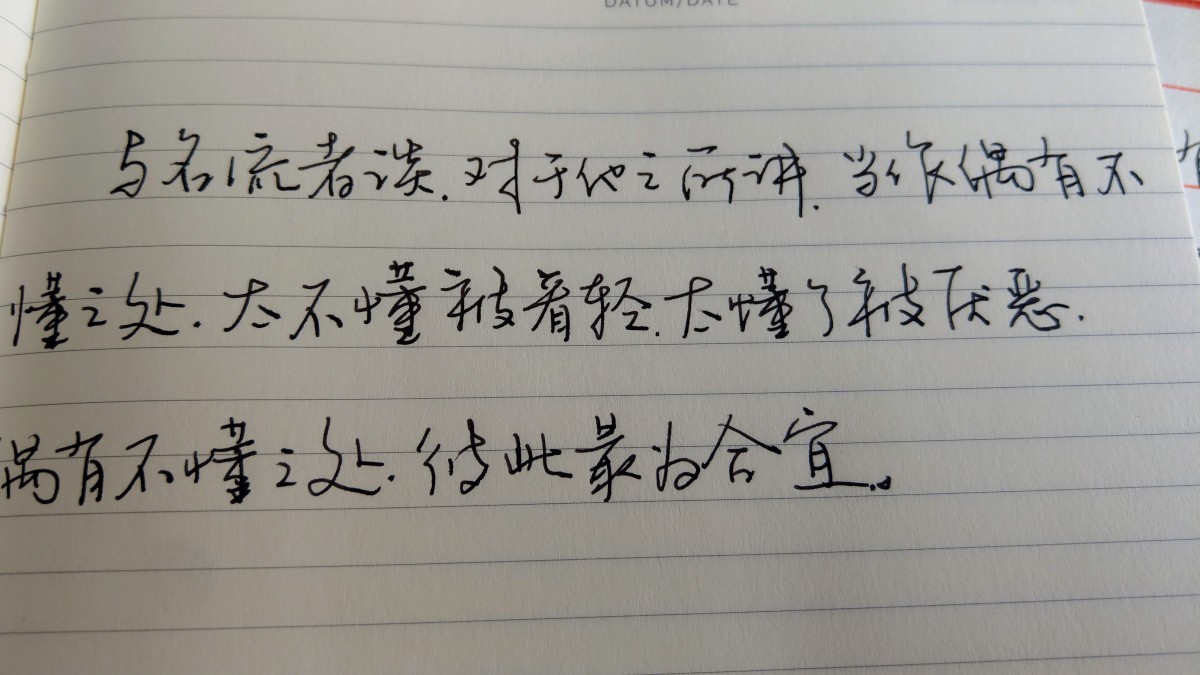 DATUM/DATE
与名流者谈.对于他之所讲.当作偶有不
懂之处.太不懂被看轻.太懂了被厌恶.
偶有不懂之处.彼此最为合宜。